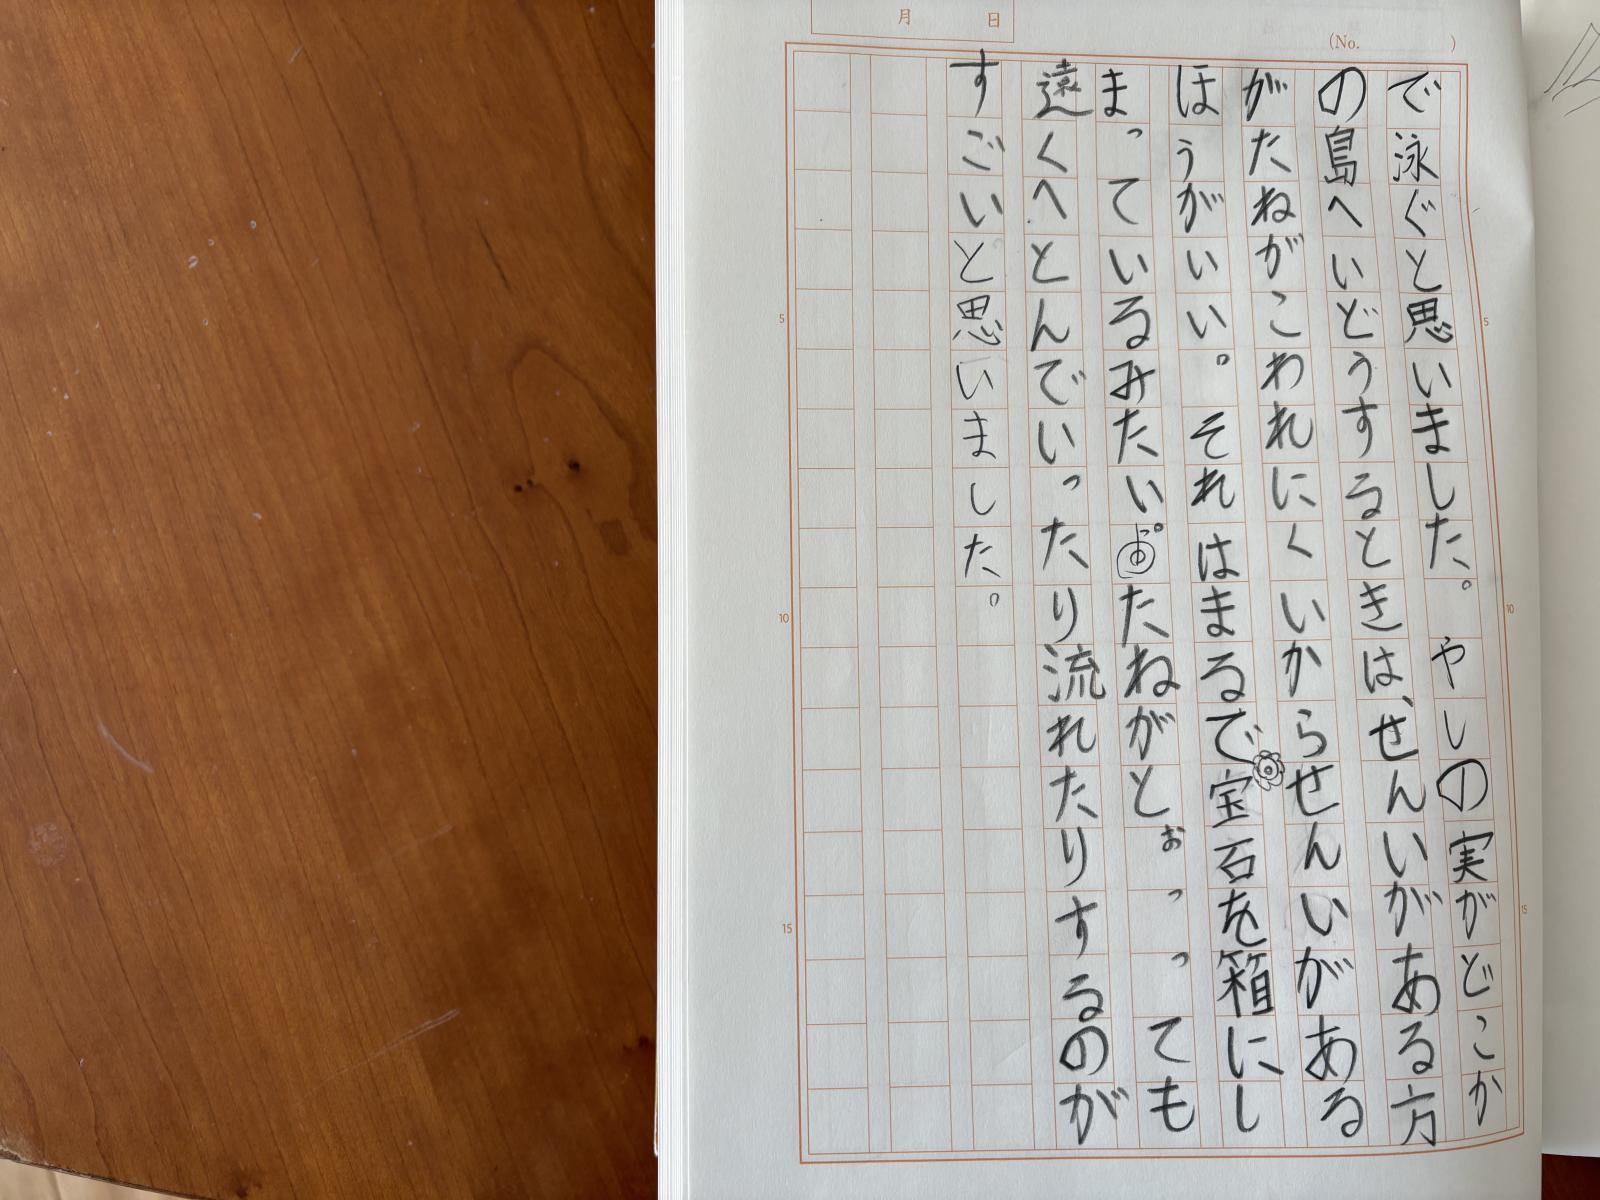 月 日
(No. )
で泳ぐと思いました。やしの実がどこか
の島へいどうするときは、せんいがある方
がたねがこわれにくいからせんいがある
ほうがいい。それはまるで宝石を箱にし
まっているみたい。たねがとぉっっても
遠くへとんでいったり流れたりするのが
すごいと思いました。
5
10
15
5
10
15